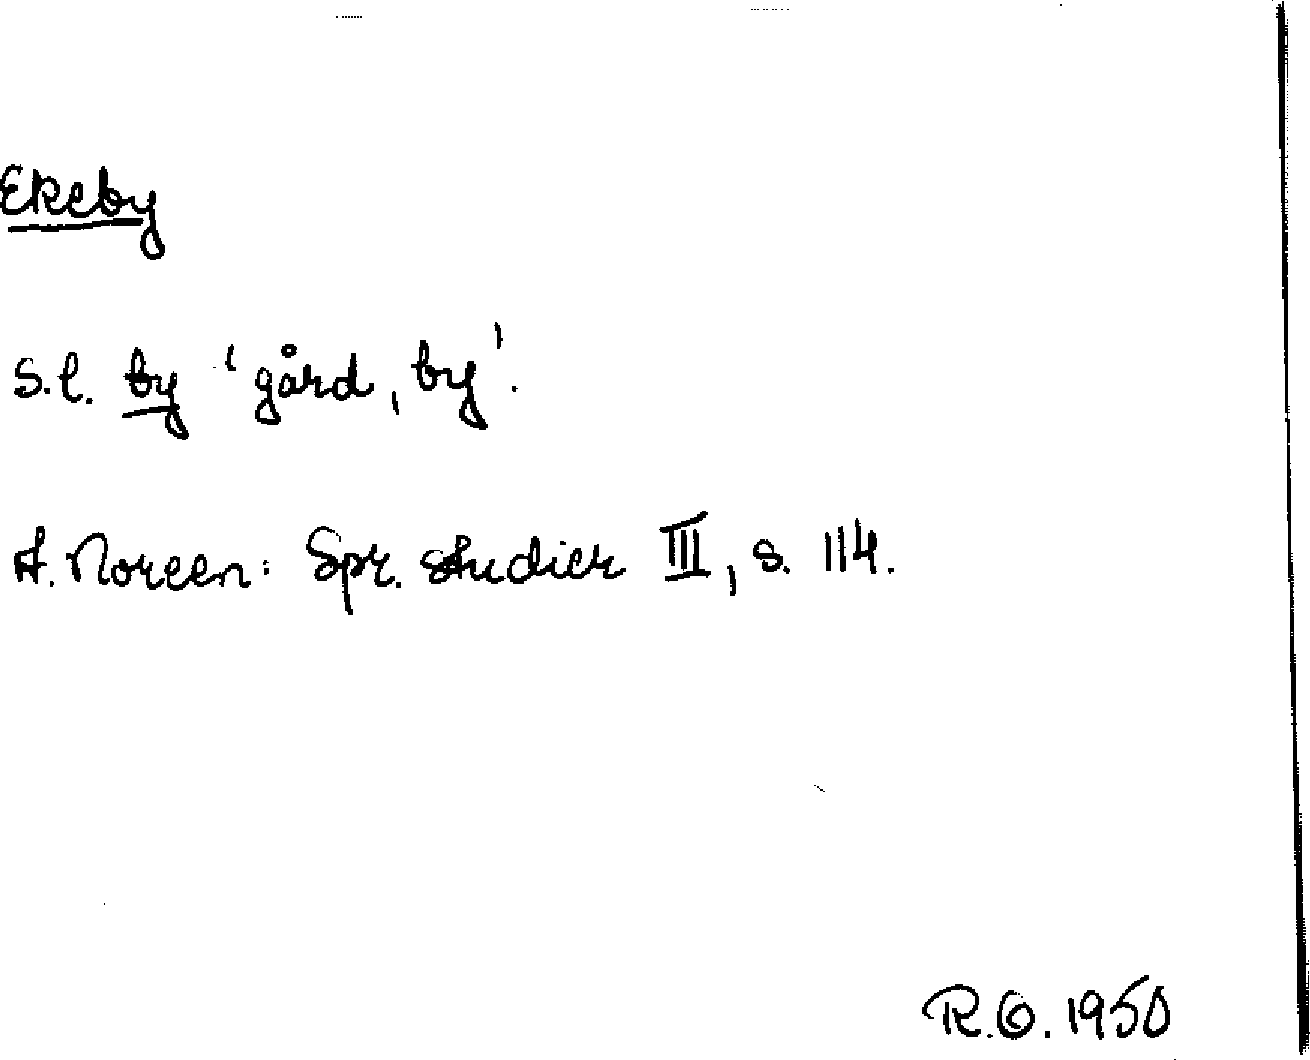 Ekeby
S.l. by 'gård, by'.
A. Noreen: Spr. studier III, s. 114.
R.O. 1950